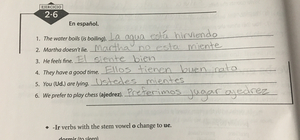 EJERCICIO
2·6
En español.
1. The water boils (is boiling). La agua está hirviendo
2. Martha doesn't lie. Martha no esta miente
3. He feels fine. El siente bien
4. They have a good time. Ellos tienen buen rato
5. You (Ud.) are lying. Ustedes mentes
6. We prefer to play chess (ajedrez). Preferimos jugar ajedrez
-Ir verbs with the stem vowel o change to ue.